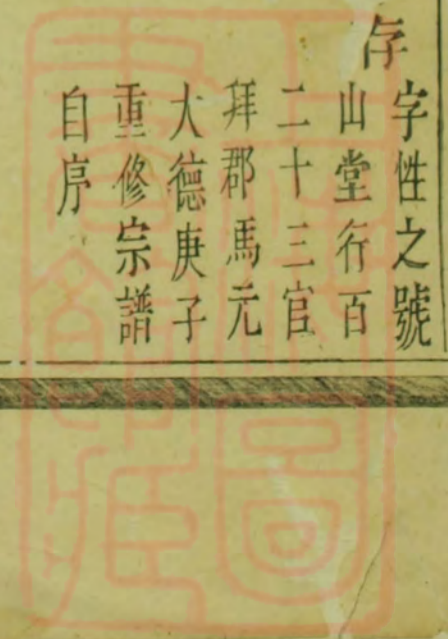 存
字性之號
山堂行百
二十三官
拜郡馬元
大德庚子
重修宗譜
自序